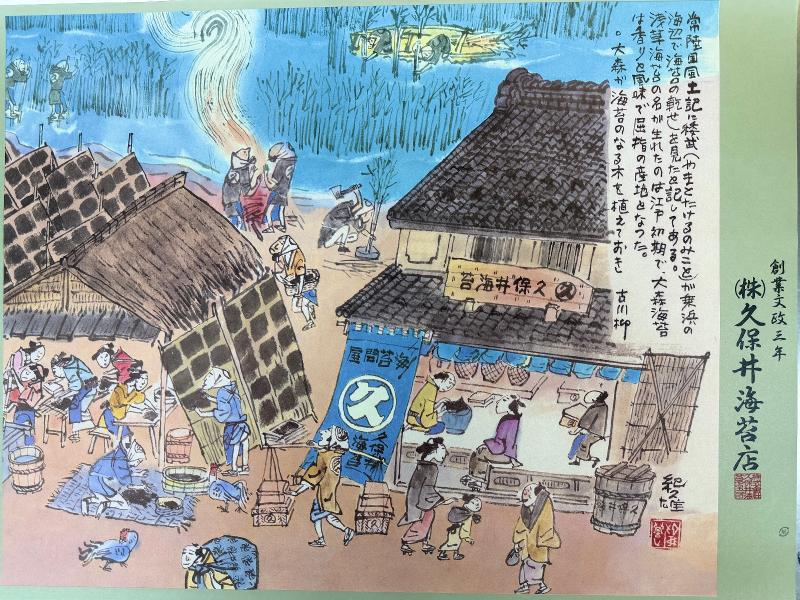 常陸国風土記に倭武(やまとたけるのみこと)が乗浜の
海辺で海苔の乾せるを見たと記してある。
浅草海苔の名が生れたのは江戸初期で、大森海苔
は香りと風味で屈指の産地となった。
。大森が海苔のなる木を植えておき 古川柳
創業文政三年
(株)久保井海苔店
苔海井保久 久
海苔問屋
久
久保井
海苔
紀久雄
久保井海苔